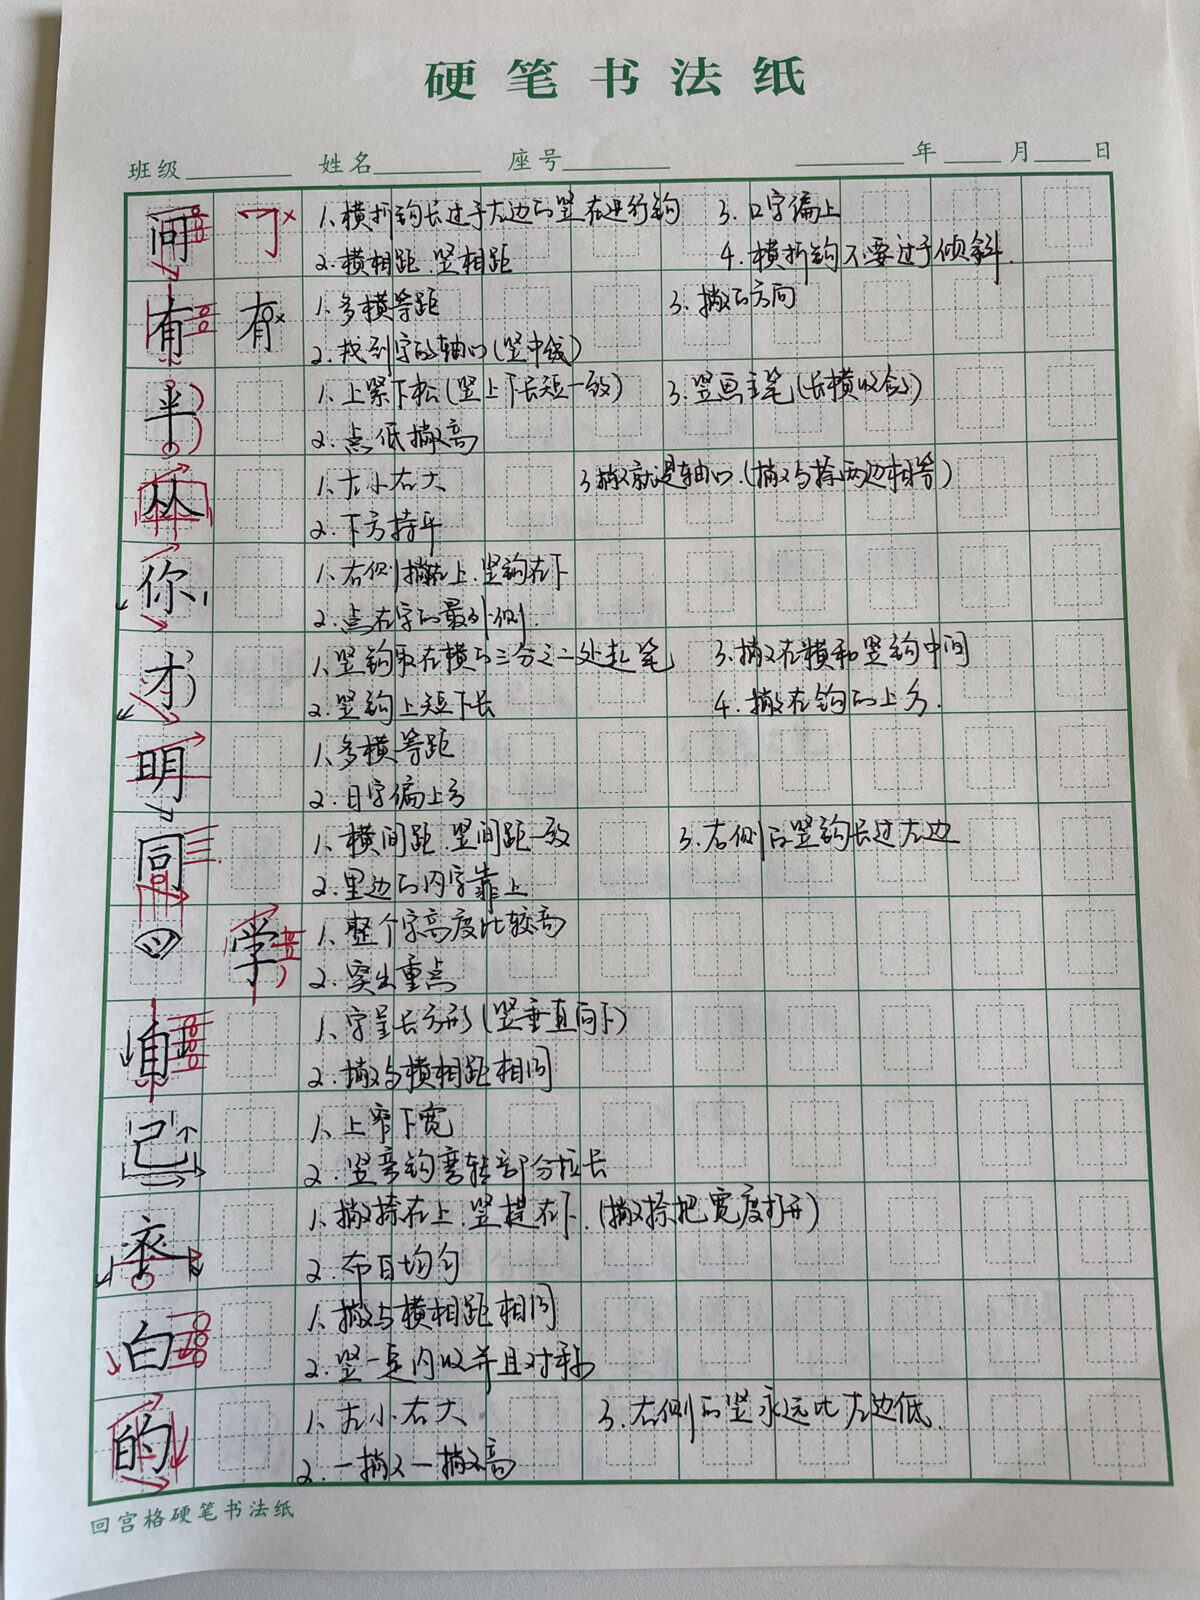 硬笔书法纸
班级 姓名 座号 年 月 日
间 1、横折钩长过于左边的竖在进行钩 3、口字偏上
2、横相距、竖相距 4、横折钩不要过于倾斜.
有 有 1、多横等距 3、撇的方向
2、找到字的轴心(竖中线)
半 1、上紧下松(竖上下长短一致) 3、竖画主笔(长横收敛)
2、点低撇高
从 1、左小右大 3、撇就是轴心.(撇与捺两边相等)
2、下方持平
你 1、右侧撇在上、竖钩在下
2、点在字的最外侧.
才 1、竖钩取在横的三分之二处起笔 3、撇在横和竖钩中间
2、竖钩上短下长 4、撇在钩的上方.
明 1、多横等距
2、日字偏上方
同 1、横间距、竖间距一致 3、右侧的竖钩长过左边
2、里边的内字靠上
学 1、整个字高度比较高
2、突出重点
自 1、字呈长方形(竖垂直向下)
2、撇与横相距相同
己 1、上窄下宽
2、竖弯钩弯转部分拉长
1、撇捺在上、竖提在下.(撇捺把宽度打开)
2、布白均匀
白 1、撇与横相距相同
2、竖一定内收并且对称
的 1、左小右大 3、右侧的竖永远比左边低.
2、一撇又一撇高
回宫格硬笔书法纸